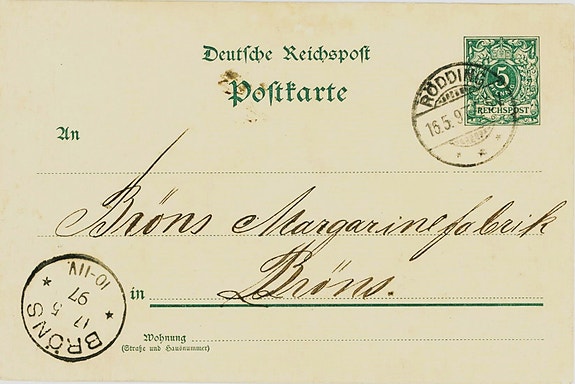 Deutsche Reichspost
Postkarte
5
REICHSPOST
RÖDDING
16.5.9
An
Bröns Margarinefabrik
in Bröns.
BRÖNS
17 5
97
10-11V.
Wohnung
(Straße und Hausnummer)